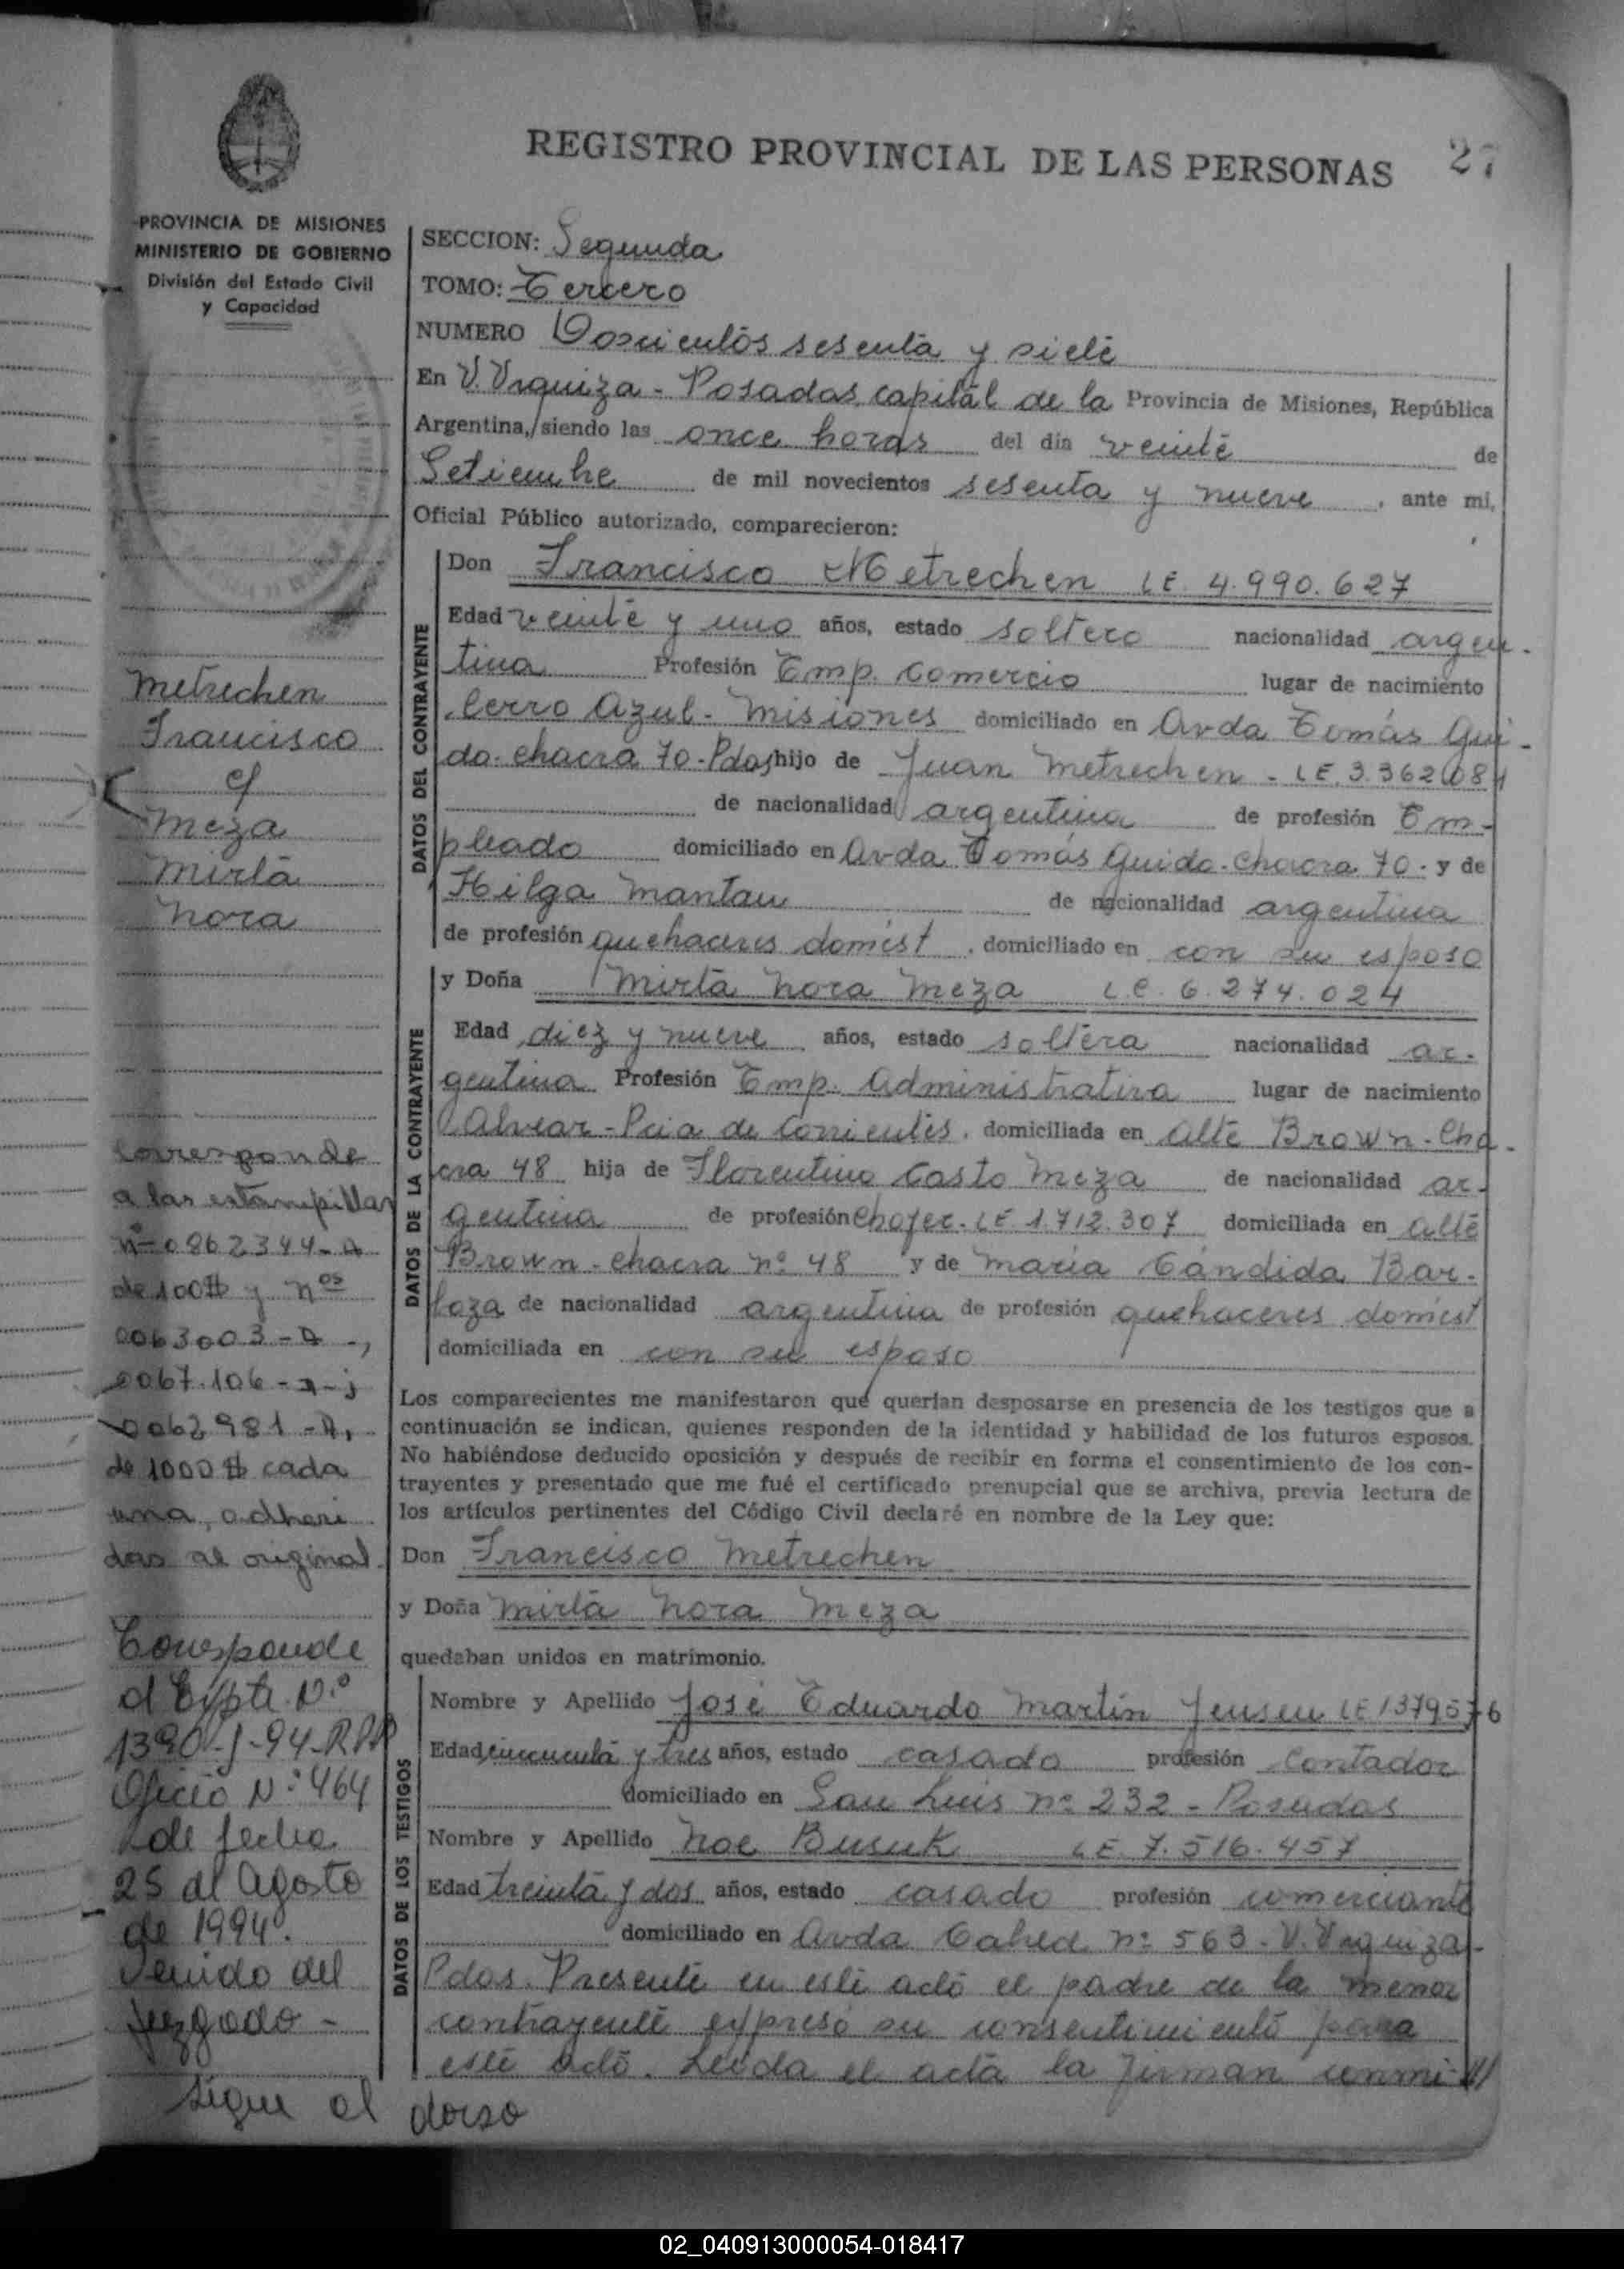 REGISTRO PROVINCIAL DE LAS PERSONAS
27
PROVINCIA DE MISIONES
MINISTERIO DE GOBIERNO
División del Estado Civil
y Capacidad
SECCION: Segunda
TOMO: Tercero
NUMERO Doscientos sesenta y siete
En V. Urquiza - Posadas, capital de la Provincia de Misiones, República
Argentina, siendo las once horas del día veinte de
Setiembre de mil novecientos sesenta y nueve, ante mi,
Oficial Público autorizado, comparecieron:
DATOS DEL CONTRAYENTE
Don Francisco Metrechen LE. 4.990.627
Edad veinte y uno años, estado soltero nacionalidad argen-
tina Profesión Emp. Comercio lugar de nacimiento
Cerro Azul - Misiones domiciliado en Avda Tomás Gui-
do. chacra 70 - Pdas hijo de Juan Metrechen - LE. 3.362.084
de nacionalidad argentina de profesión Em-
pleado domiciliado en Avda Tomás Guido - Chacra 70 - y de
Hilga Mantau de nacionalidad argentina
de profesión quehaceres domést. domiciliado en con su esposo
DATOS DE LA CONTRAYENTE
y Doña Mirta Nora Meza L.C. 6.274.024
Edad diez y nueve años, estado soltera nacionalidad ar-
gentina Profesión Emp. Administrativa lugar de nacimiento
Alvear - Pcia de Corrientes, domiciliada en Alte Brown - Cha-
cra 48 hija de Florentino Casto Meza de nacionalidad ar-
gentina de profesión Chofer. LE 1.712.307 domiciliada en Alte
Brown - chacra nº 48 y de María Cándida Bar-
boza de nacionalidad argentina de profesión quehaceres domést
domiciliada en con su esposo
Los comparecientes me manifestaron que querían desposarse en presencia de los testigos que a
continuación se indican, quienes responden de la identidad y habilidad de los futuros esposos.
No habiéndose deducido oposición y después de recibir en forma el consentimiento de los con-
trayentes y presentado que me fué el certificado prenupcial que se archiva, previa lectura de
los artículos pertinentes del Código Civil declaré en nombre de la Ley que:
Don Francisco Metrechen
y Doña Mirta Nora Meza
quedaban unidos en matrimonio.
DATOS DE LOS TESTIGOS
Nombre y Apellido José Eduardo Martín Jensen LE 1379576
Edad cincuenta y tres años, estado casado profesión Contador
domiciliado en San Luis nº 232 - Posadas
Nombre y Apellido Noe Busuk LE. 7.516.457
Edad treinta y dos años, estado casado profesión comerciante
domiciliado en Avda Cabred nº 563 - V. Urquiza -
Pdas. Presente en este acto el padre de la menor
contrayente expresó su consentimiento para
este acto. Leída el acta la firman conmi-///
Metrechen
Francisco
c/
Meza
Mirta
Nora
Corresponde
a las estampillas
nº 0862344-A
de 100$ y nos
0063003-A-,
0067.106-A-;
0062981-A,
de 1000$ cada
una, adheri
das al original.
Corresponde
al Expte. Nº
1390-J-94-RPP
Oficio Nº 464
de fecha
25 de Agosto
de 1994.
Venido del
Juzgado -
Sigue al dorso
02_040913000054-018417